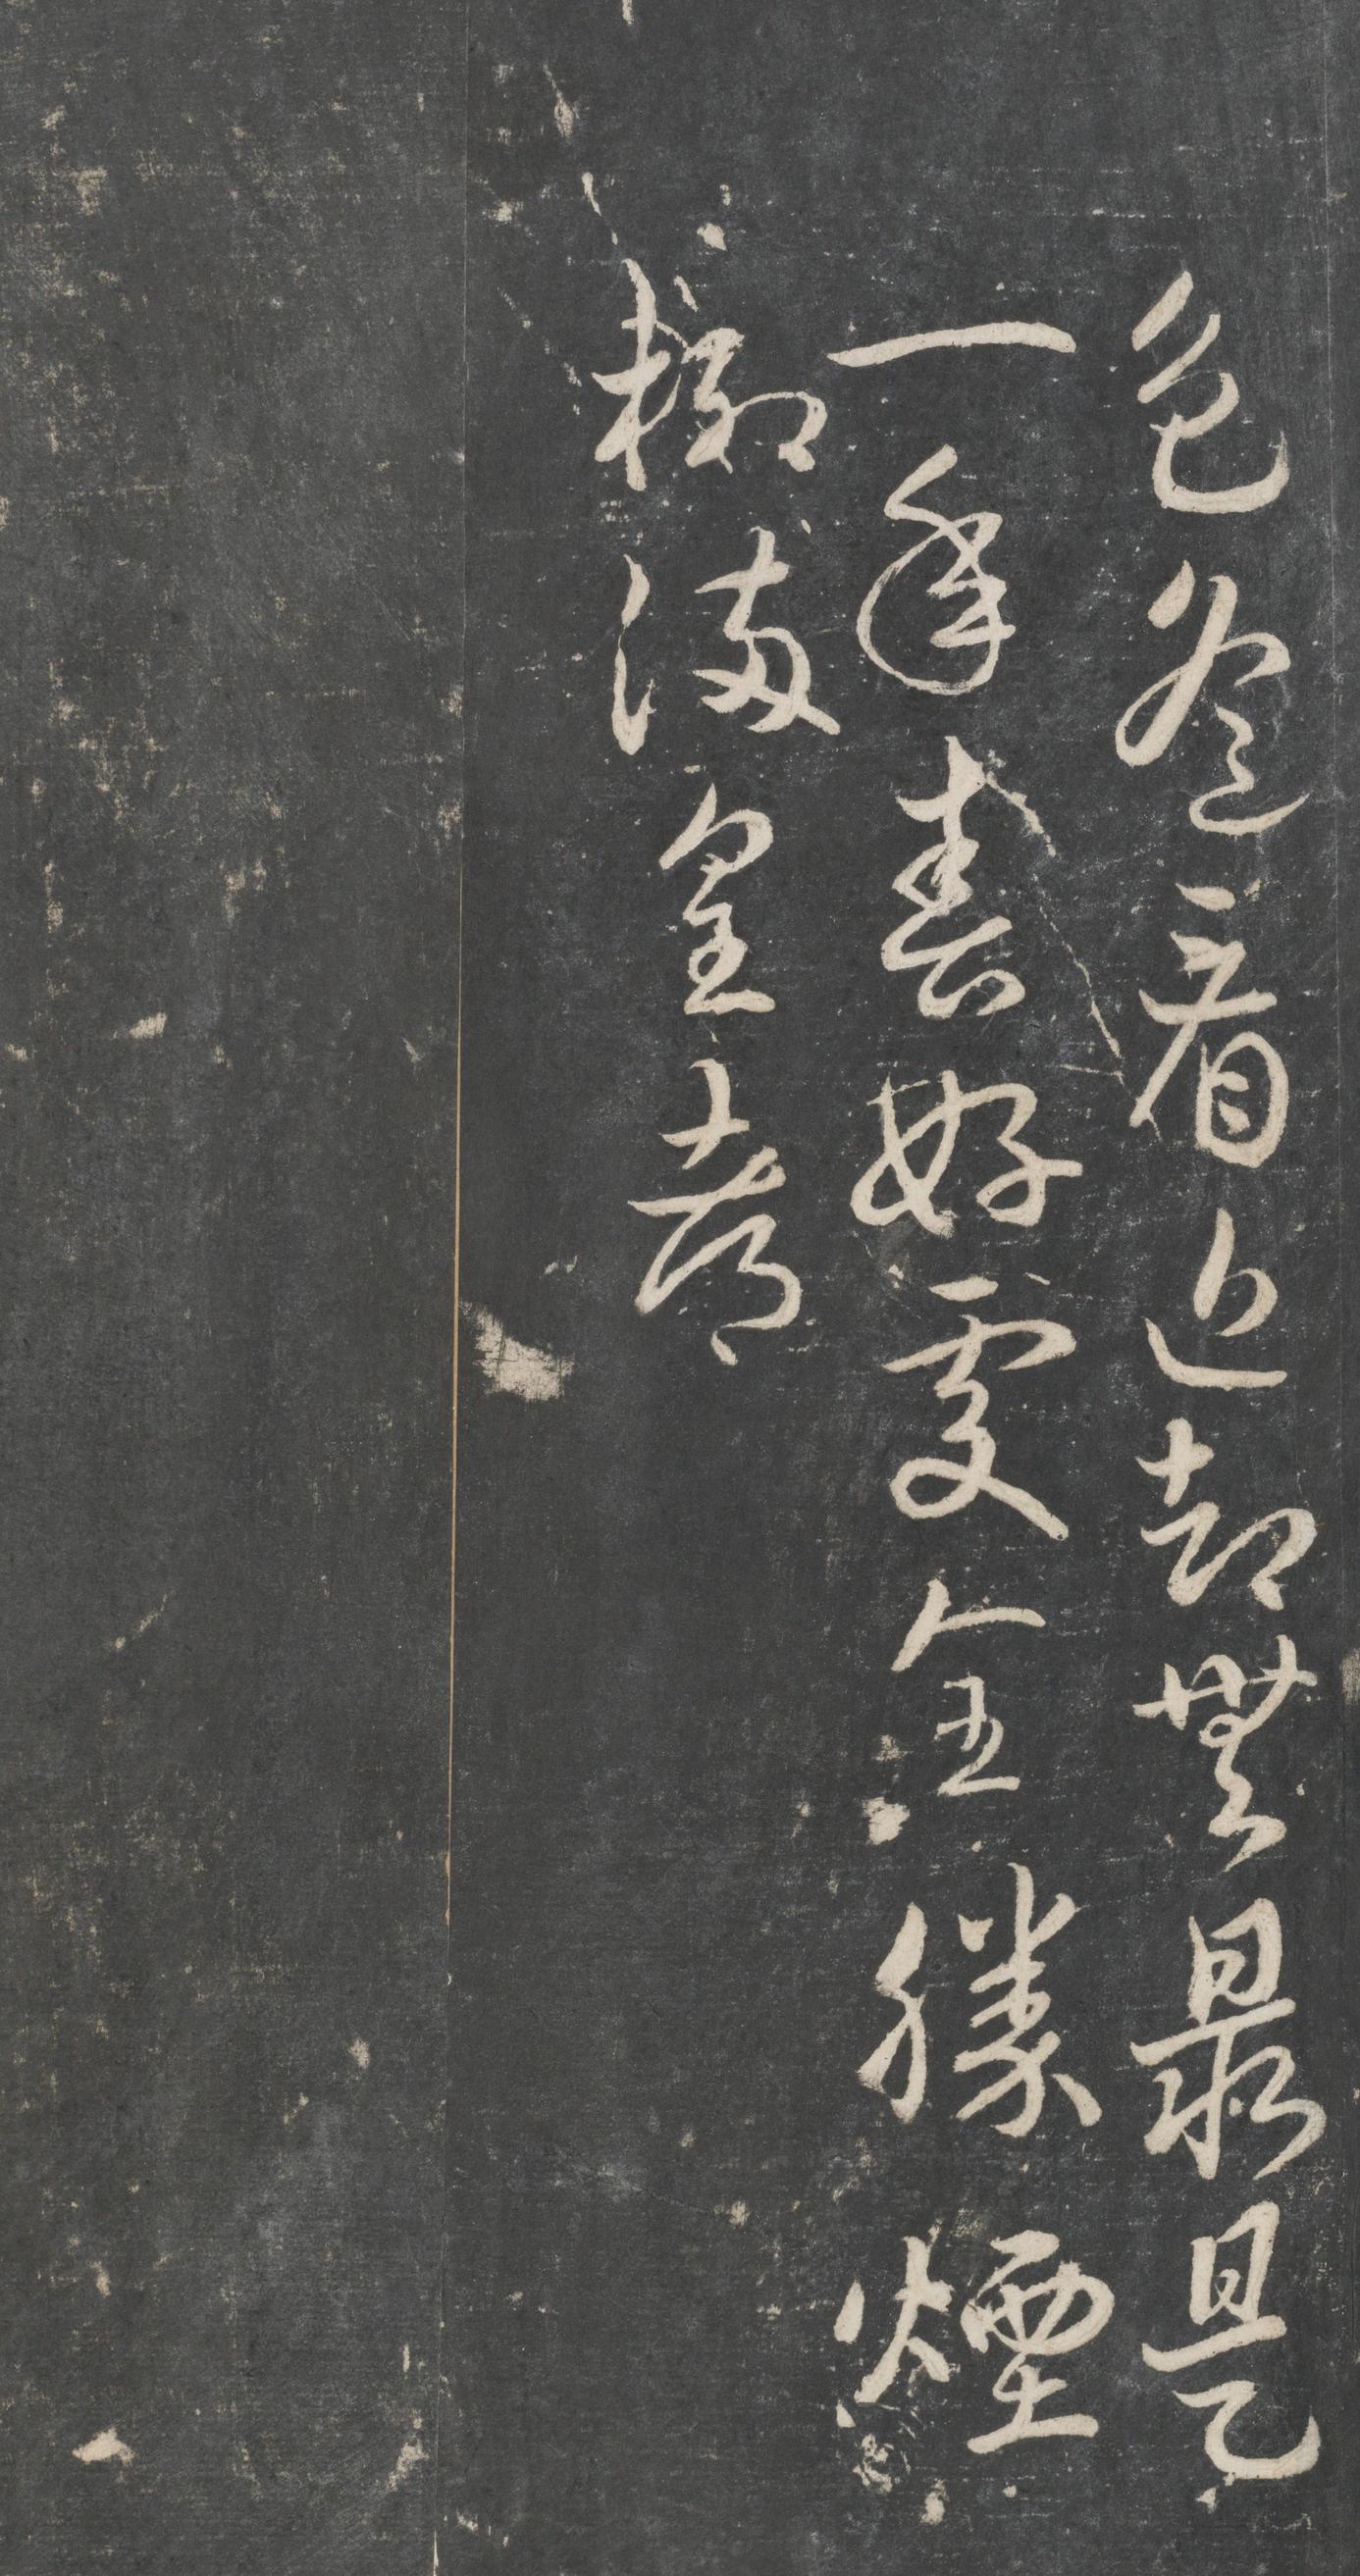 色遙看近却無最是
一年春好處全勝煙
柳滿皇都